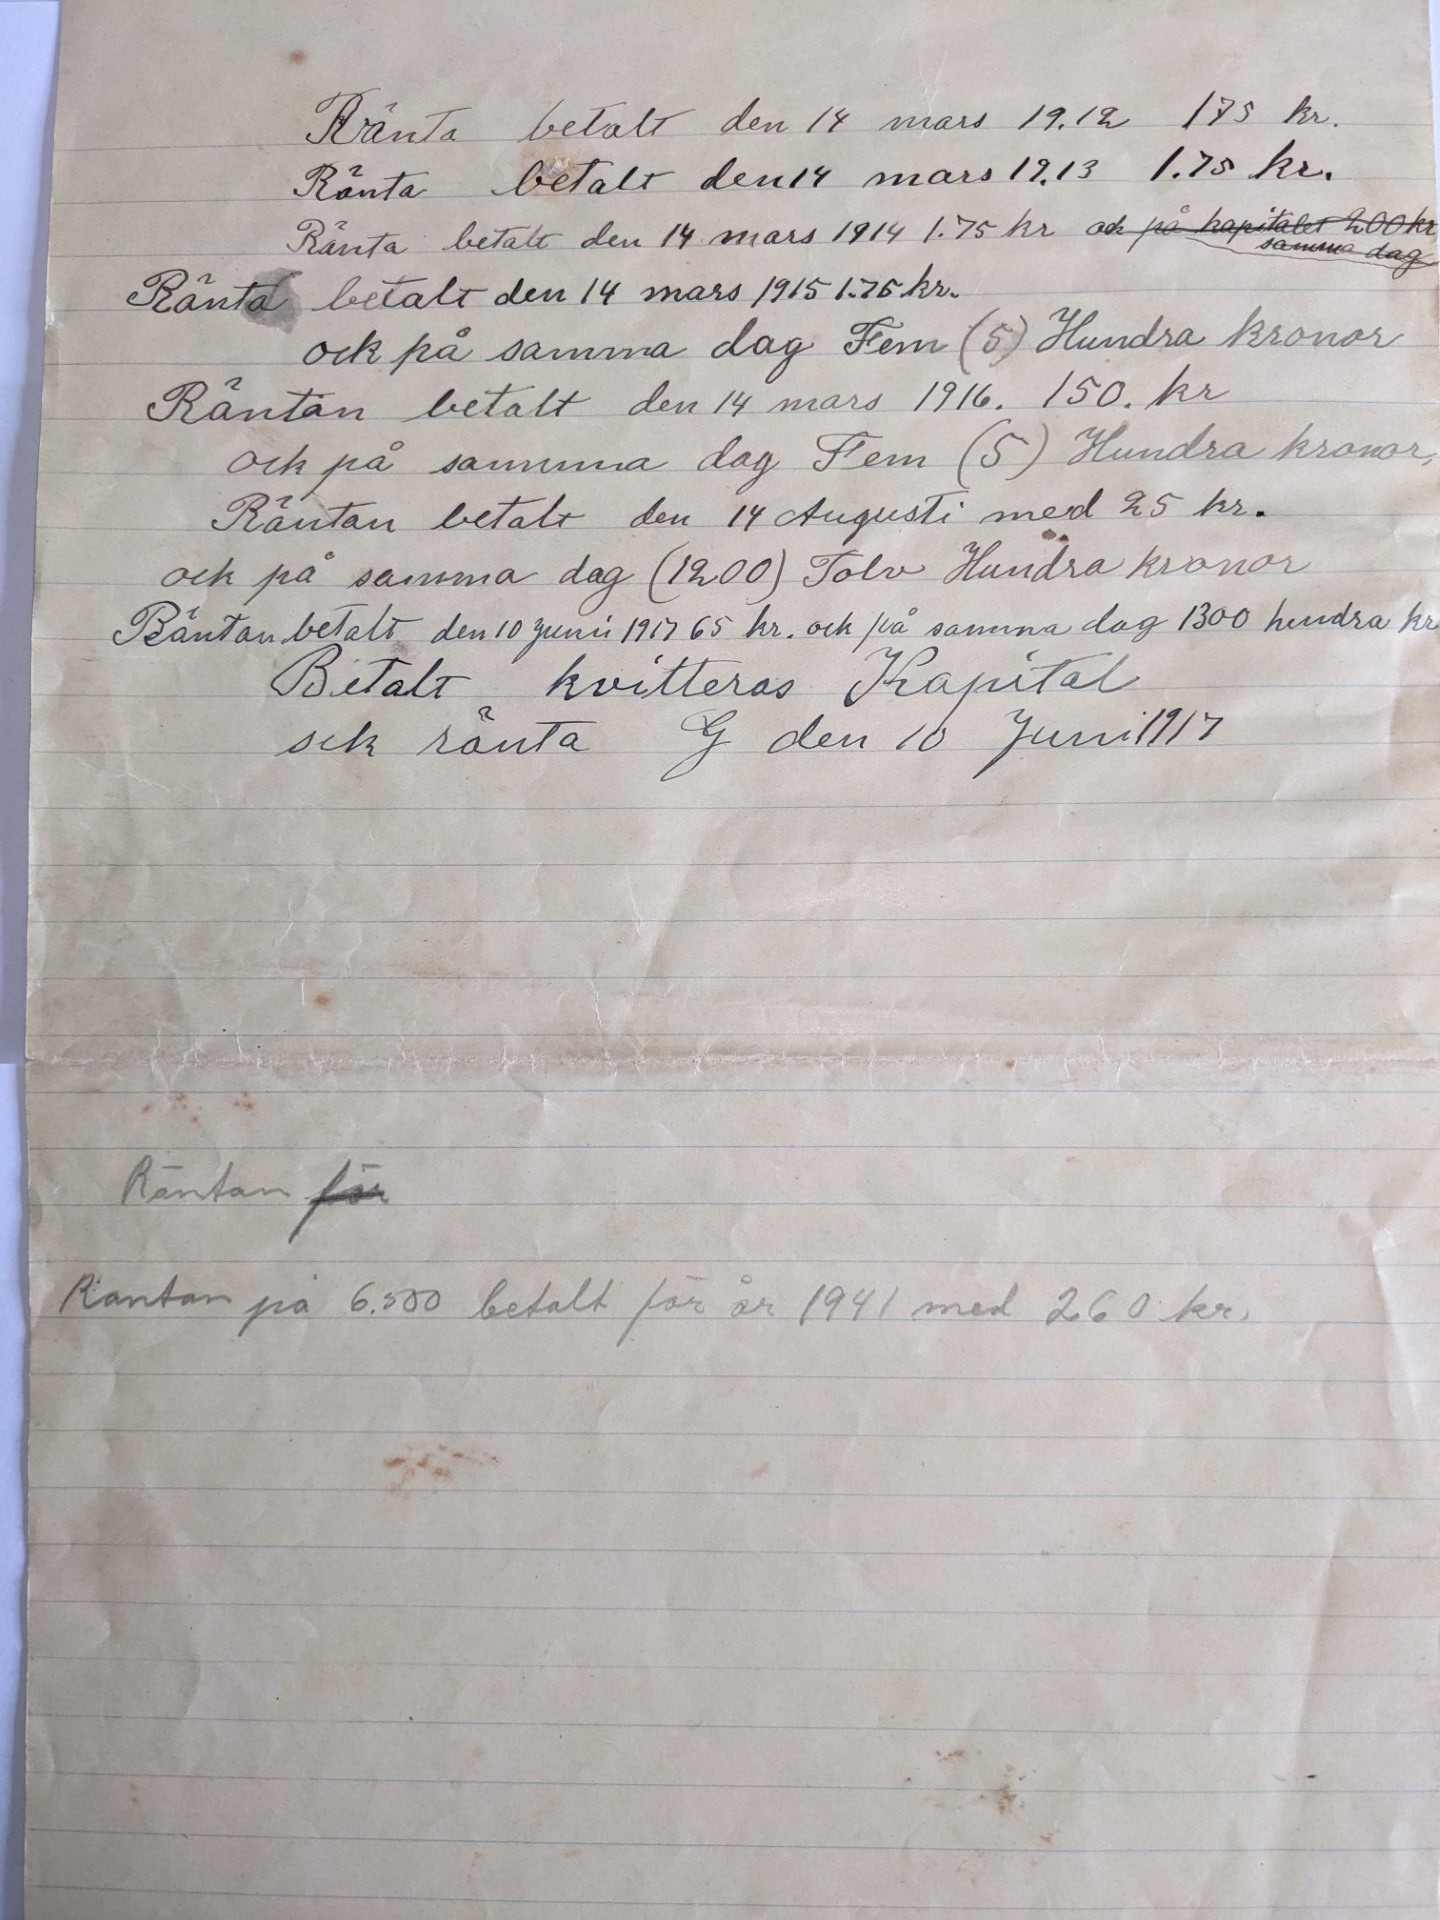 Ränta betalt den 14 mars 19.12 175 kr.
Ränta betalt den 14 mars 19.13 1.75 kr.
Ränta betalt den 14 mars 1914 1.75 kr ock på kapitalet 200 kr
samma dag
Ränta betalt den 14 mars 1915 1.75 kr.
ock på samma dag Fem (5) Hundra kronor
Räntan betalt den 14 mars 1916. 150. kr
ock på samma dag Fem (5) Hundra kronor,
Räntan betalt den 14 Augusti med 25 kr.
ock på samma dag (1200) Tolv Hundra kronor
Räntan betalt den 10 Junii 1917 65 kr. ock på samma dag 1300 hundra kr
Betalt kvitteras Kapital
ock ränta G den 10 Juni 1917
Räntan för
Räntan på 6.500 betalt för år 1941 med 260 kr.